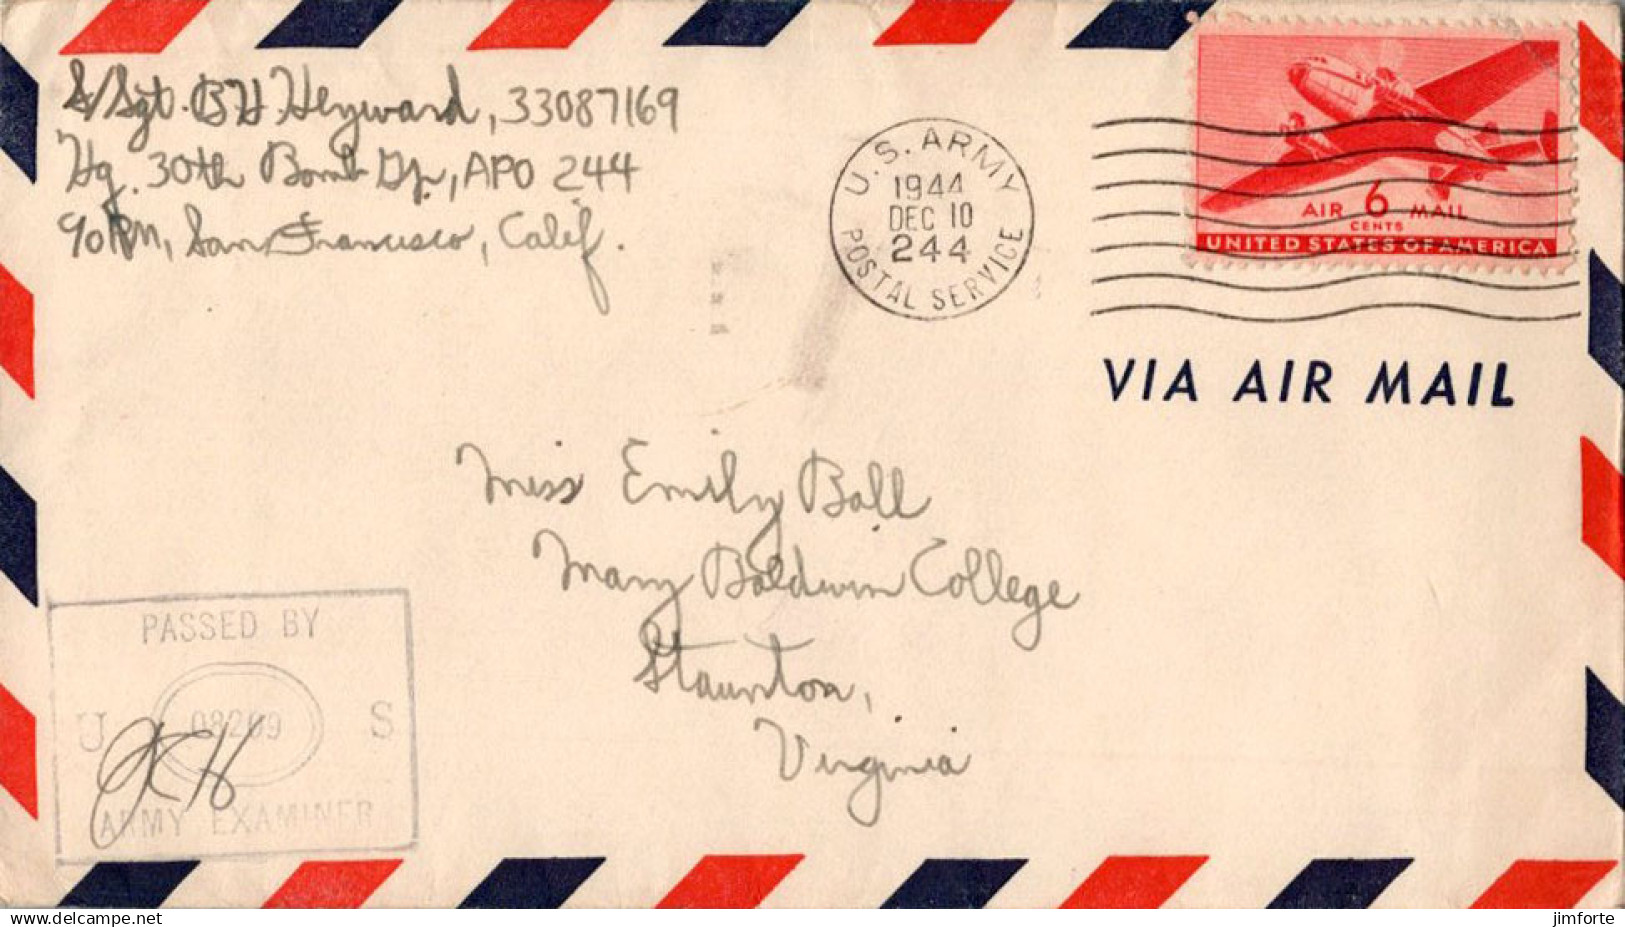 S/Sgt. B H Heyward, 33087169
Hq. 30th Bomb Gp., APO 244
℅ PM, San Francisco, Calif.
U.S. ARMY
1944
DEC 10
244
POSTAL SERVICE
AIR 6 MAIL
CENTS
UNITED STATES OF AMERICA
VIA AIR MAIL
Miss Emily Ball
Mary Baldwin College
Staunton,
Virginia
PASSED BY
U 08209 S
ARMY EXAMINER
www.delcampe.net
jimforte